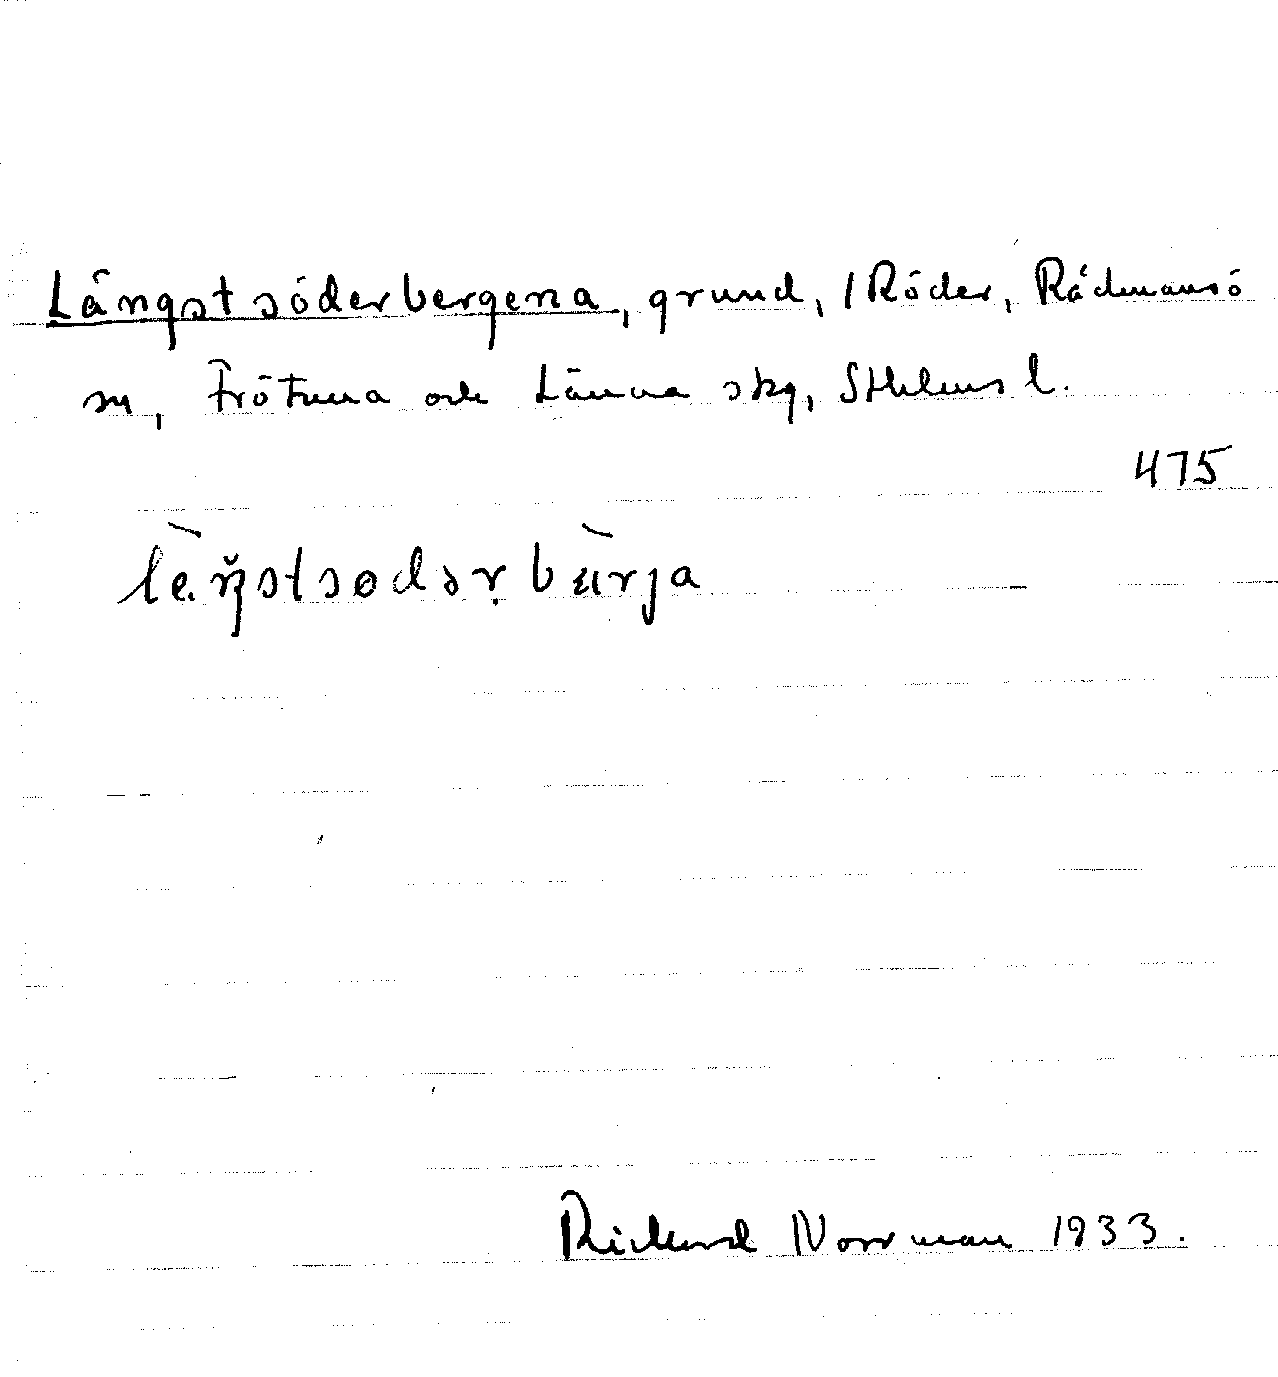 Längst söderbergena, grund, 1 Röder, Rådmansö
sn, Frötuna och Länna skg, Sthlms l.
475
Rickard Norrman 1933.